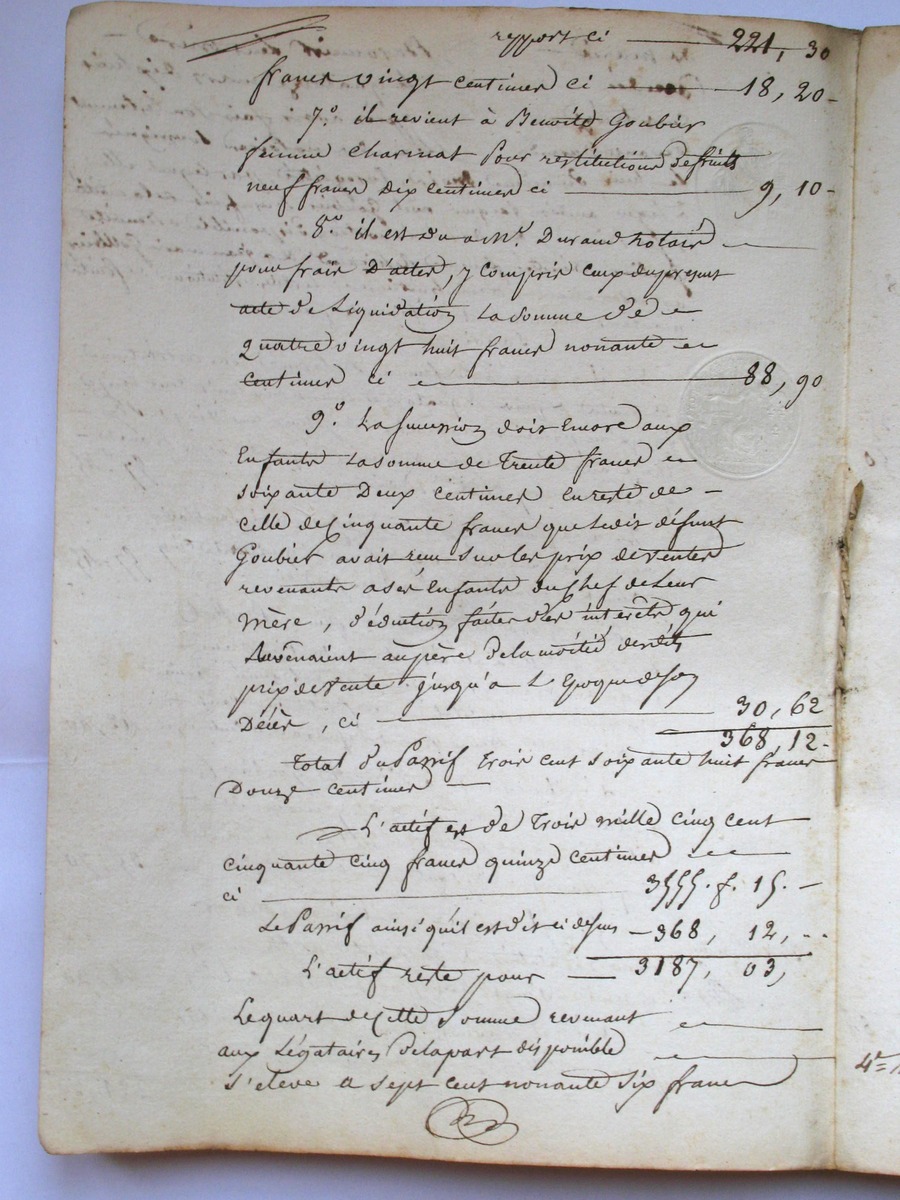 report ci — 221, 30
francs vingt centimes ci — 18, 20 -
7.° il revient à Benoite Goubier
femme Charinat Pour restitution de fruits
neuf francs dix centimes ci — 9, 10 -
8.° il est du a M.r Durand notaire —
pour frais D'actes, y Compris ceux du present
acte de Liquidation La Somme de —
quatre vingt huit francs nonante —
centimes ci — 88, 90
9.° La Succession doit Encore aux
Enfants La somme de Trente francs —
soixante Deux centimes En reste de —
celle de Cinquante francs que Ledit défunt
Goubier avait reçu Sur les prix de ventes
revenants a ses Enfants du Chef de Leur
mère, déduction faites des intérêts qui
Revenaient au père De la moitié desdits
prix de Vente jusqu'a L'Epoque de Son
Décès, ci — 30, 62
368, 12 -
Total du Passif Trois cent soixante huit francs
Douze centimes —
L'actif est de Trois mille cinq cent
cinquante cinq francs quinze centimes —
ci — 3555. f. 15. —
Le Passif ainsi qu'il est dit ci dessus — 368, 12, - -
L'actif reste pour — 3187, 03,
Le quart de Cette Somme revenant —
aux Légataires De la part disponible —
s'éleve a sept cent nonante six francs
4°=